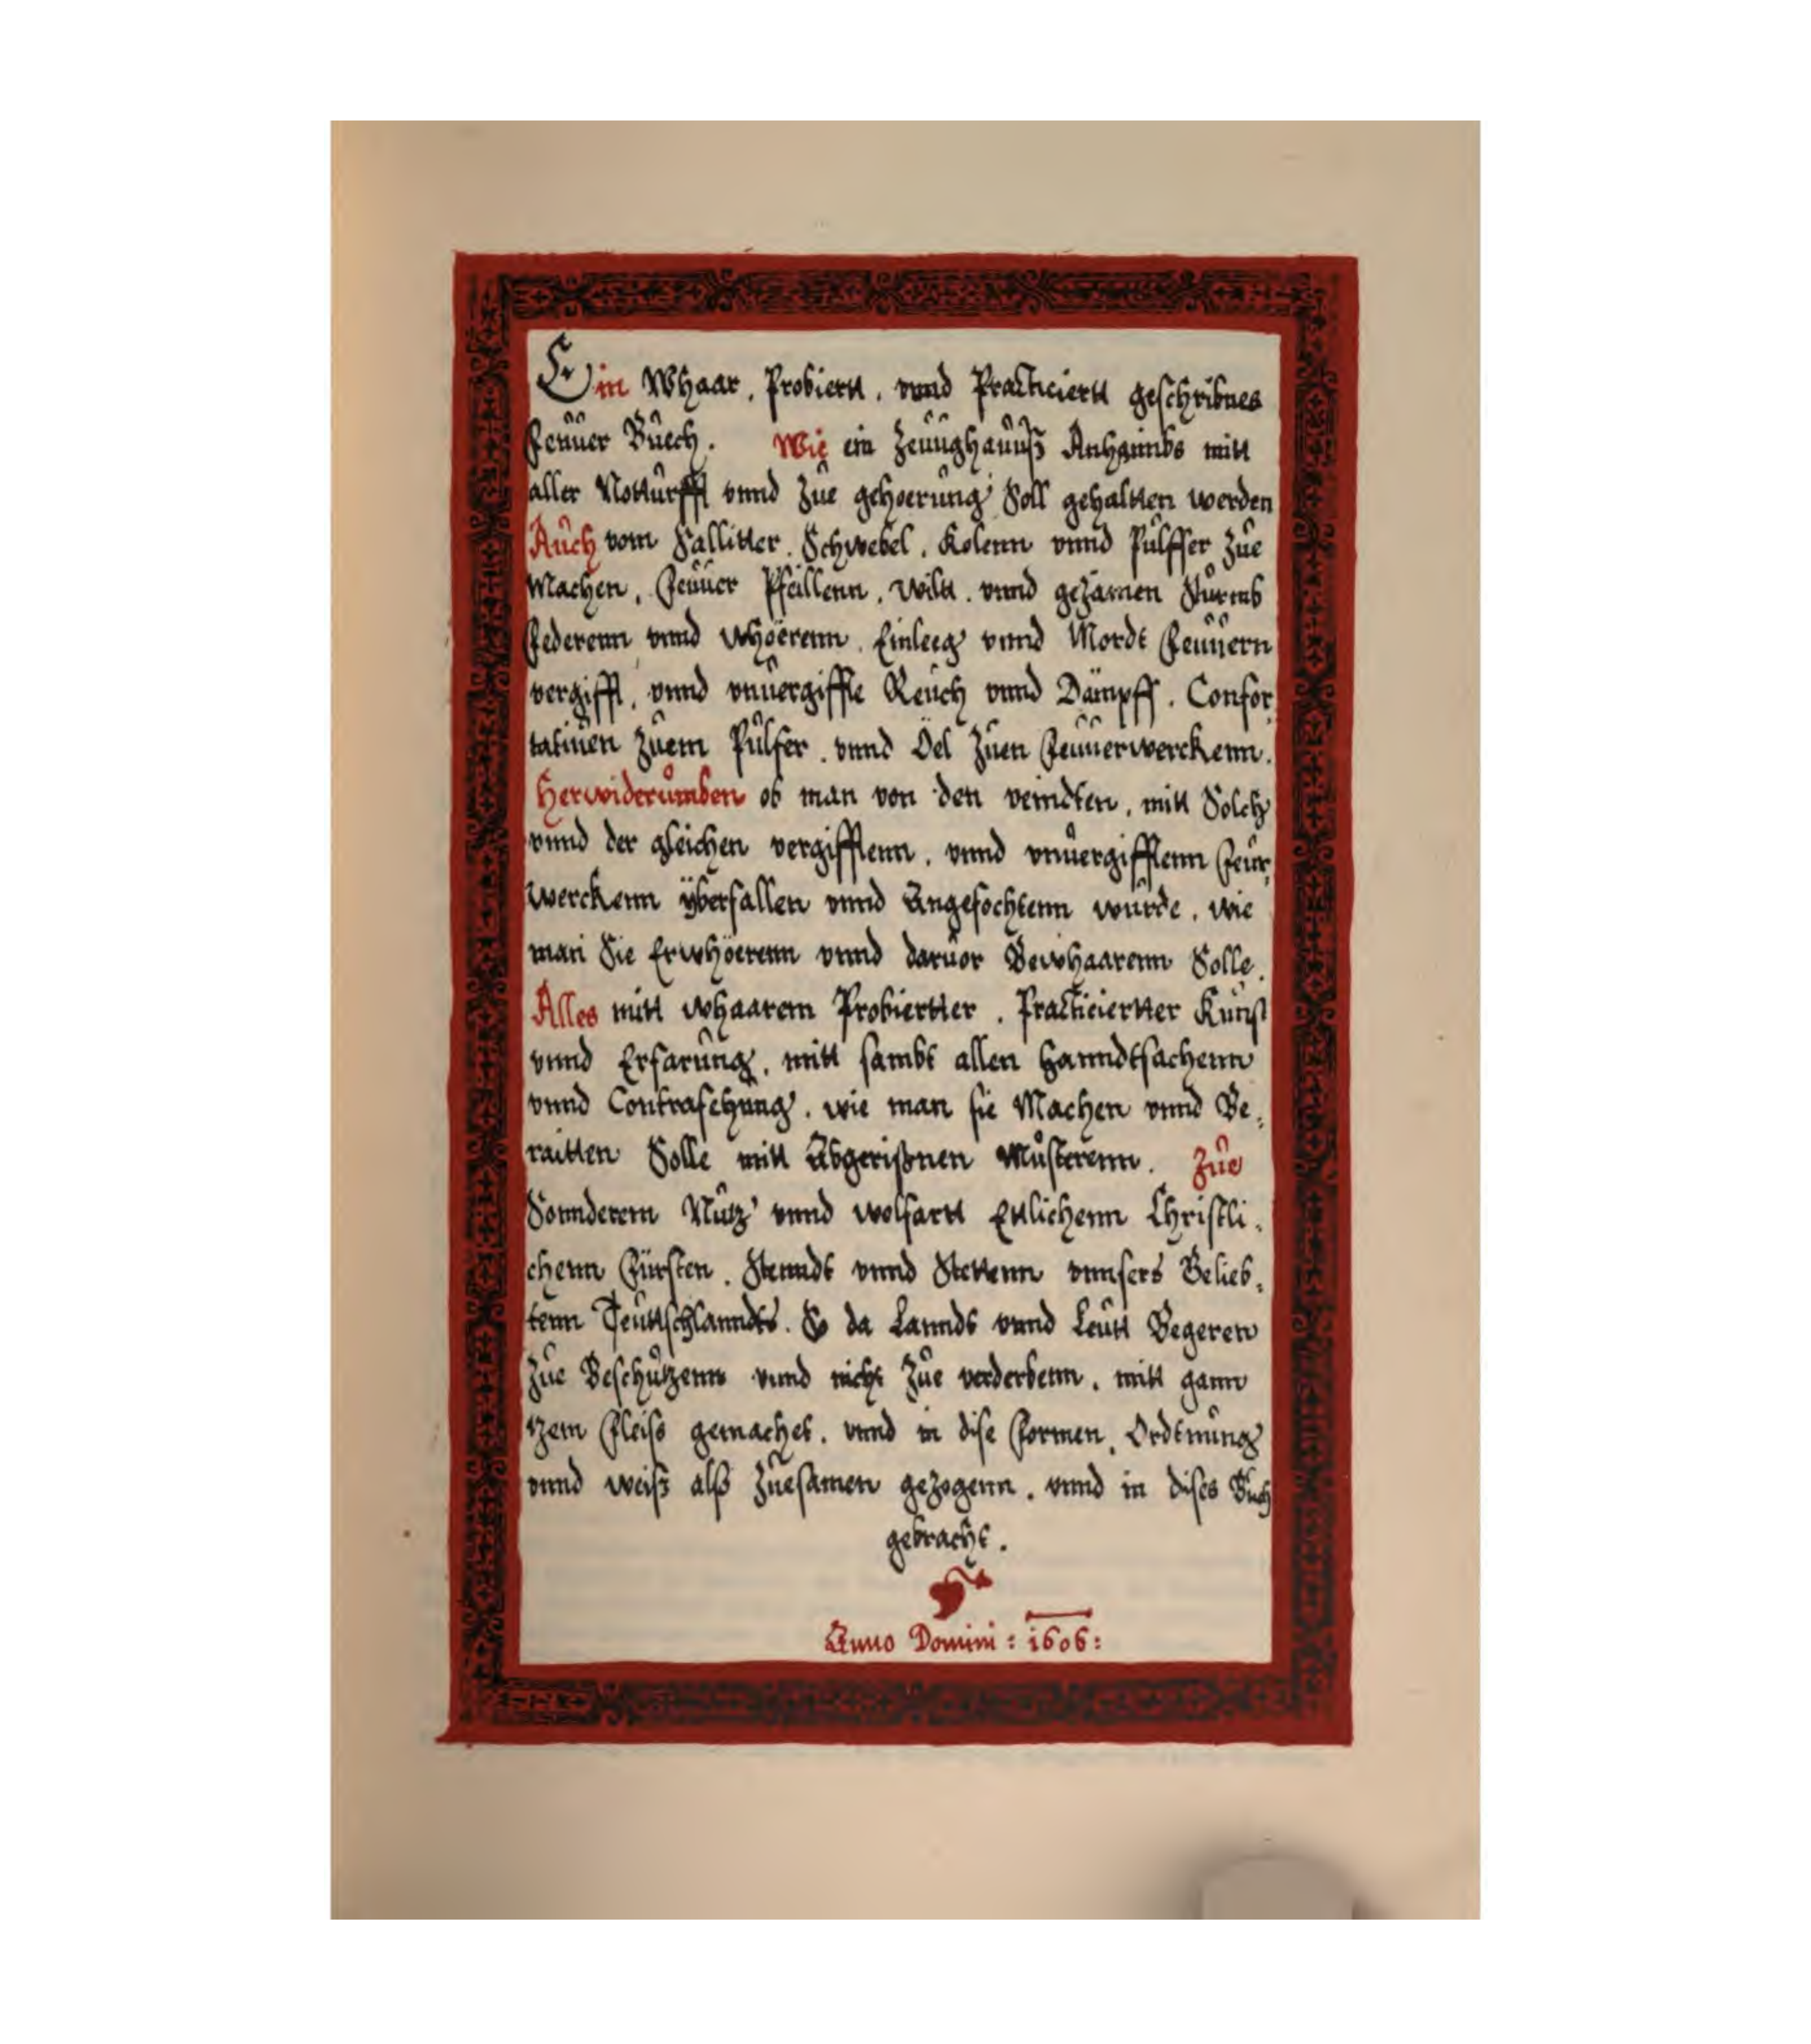 Ein Whaar, Probiertt, vnnd Practiciertt geschribnes
Feüüer Büech. Wie ein Zeüüghaüüß Anhaimbs mitt
aller Notturfft vnnd Zue gehoerung Soll gehaltten werden
Auch vom Sallitter, Schwebel, Kolenn vnnd Pulffer Zue
Machen, Feüüer Pfeillenn, Wiltt, vnnd gezamen Sturmb
Federenn vnnd Whöerenn, Einleeg vnnd Mordt Feüüern
vergifft, vnnd vnuergiffte Reüch vnnd Dämpff, Confor,
tatiuen Zuem Pulfer, vnnd Öel Zuen Feüüerwerckenn.
Herwiderumben ob man von den veindten, mitt Solch
vnnd der gleichen vergifftenn, vnnd vnuergifftenn Feür,
werckenn ÿberfallen vnnd Angefochtenn wurde, wie
man Sie Erwhöerenn vnnd daruor Bewhaarenn Solle.
Alles mitt whaarem Probiertter, Practiciertter Kunst
vnnd Erfarung, mitt sambt allen Hanndtsachenn
vnnd Contrafehung, wie man sie Machen vnnd Be,
raitten Solle mitt Abgerißnen Musterenn. Zue
Sonnderem Nutz vnnd wolfartt Ettlichenn Christli,
chenn Fürsten, Stenndt vnnd Stettenn vnnsers Belieb,
tenn Teüttschlanndts. So da Lanndt vnnd Leütt Begeren
Zue Beschutzenn vnnd nicht Zue verderbenn, mitt gann
tzem Fleiss gemachet, vnnd in dise Formen, Ordtnung
vnnd weiß alß Zuesamen gezogenn, vnnd in dises Buch
gebracht.
Anno Domini: 1606: